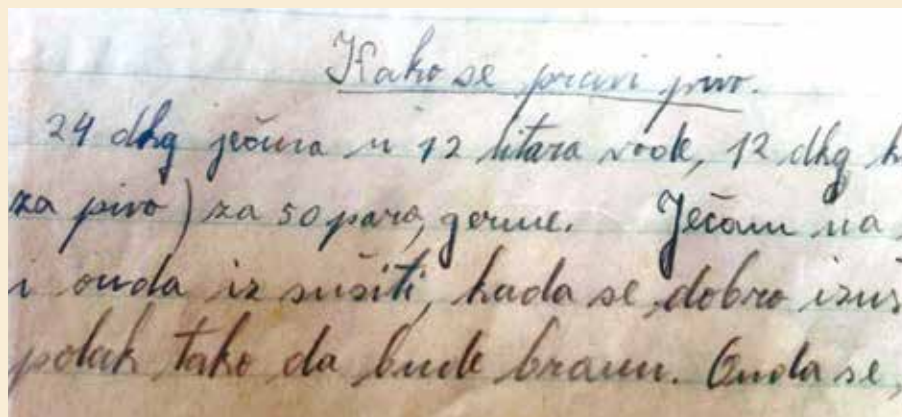 Kako se pravi pivo.
24 dkg ječma u 12 litara vode, 12 dkg h
za pivo) za 50 para, germe. Ječam na
i onda iz sušiti, kada se dobro izuš
polak tako da bude braun. Onda se,